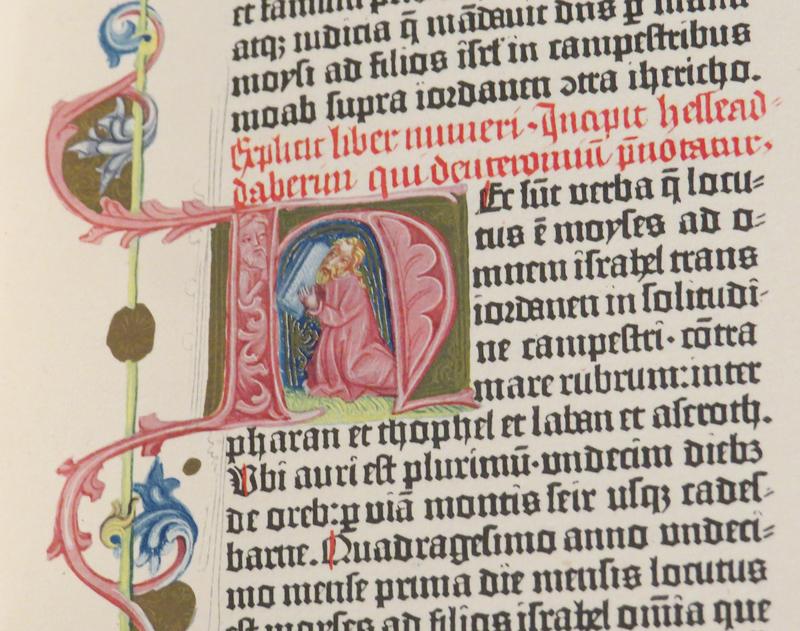 et familias per
atqȝ iudicia q̄ mādauit dn̄s ꝑ manū
moysi ad filios iſrl̄ in campeſtribus
moab ſupra iordanen ↄtra ihericho.
Explicit liber numeri · Incipit hellead-
daberim qui deuteronomiū p̄notatur,
HEc ſūt verba q̄ locu-
tus ē moyſes ad o-
mnem iſrahel trans
iordanen in ſolitudi-
ne campeſtri · cōtra
mare rubrum: inter
pharan et thophel et laban et aſeroth.
Vbi auri eſt plurimū · undecim diebȝ
de oreb: ꝑ uiā montis ſeir uſqȝ cadeſ-
barne. Quadrageſimo anno undeci-
mo menſe prima die menſis locutus
eſt moyſes ad filios iſrahel om̄ia que